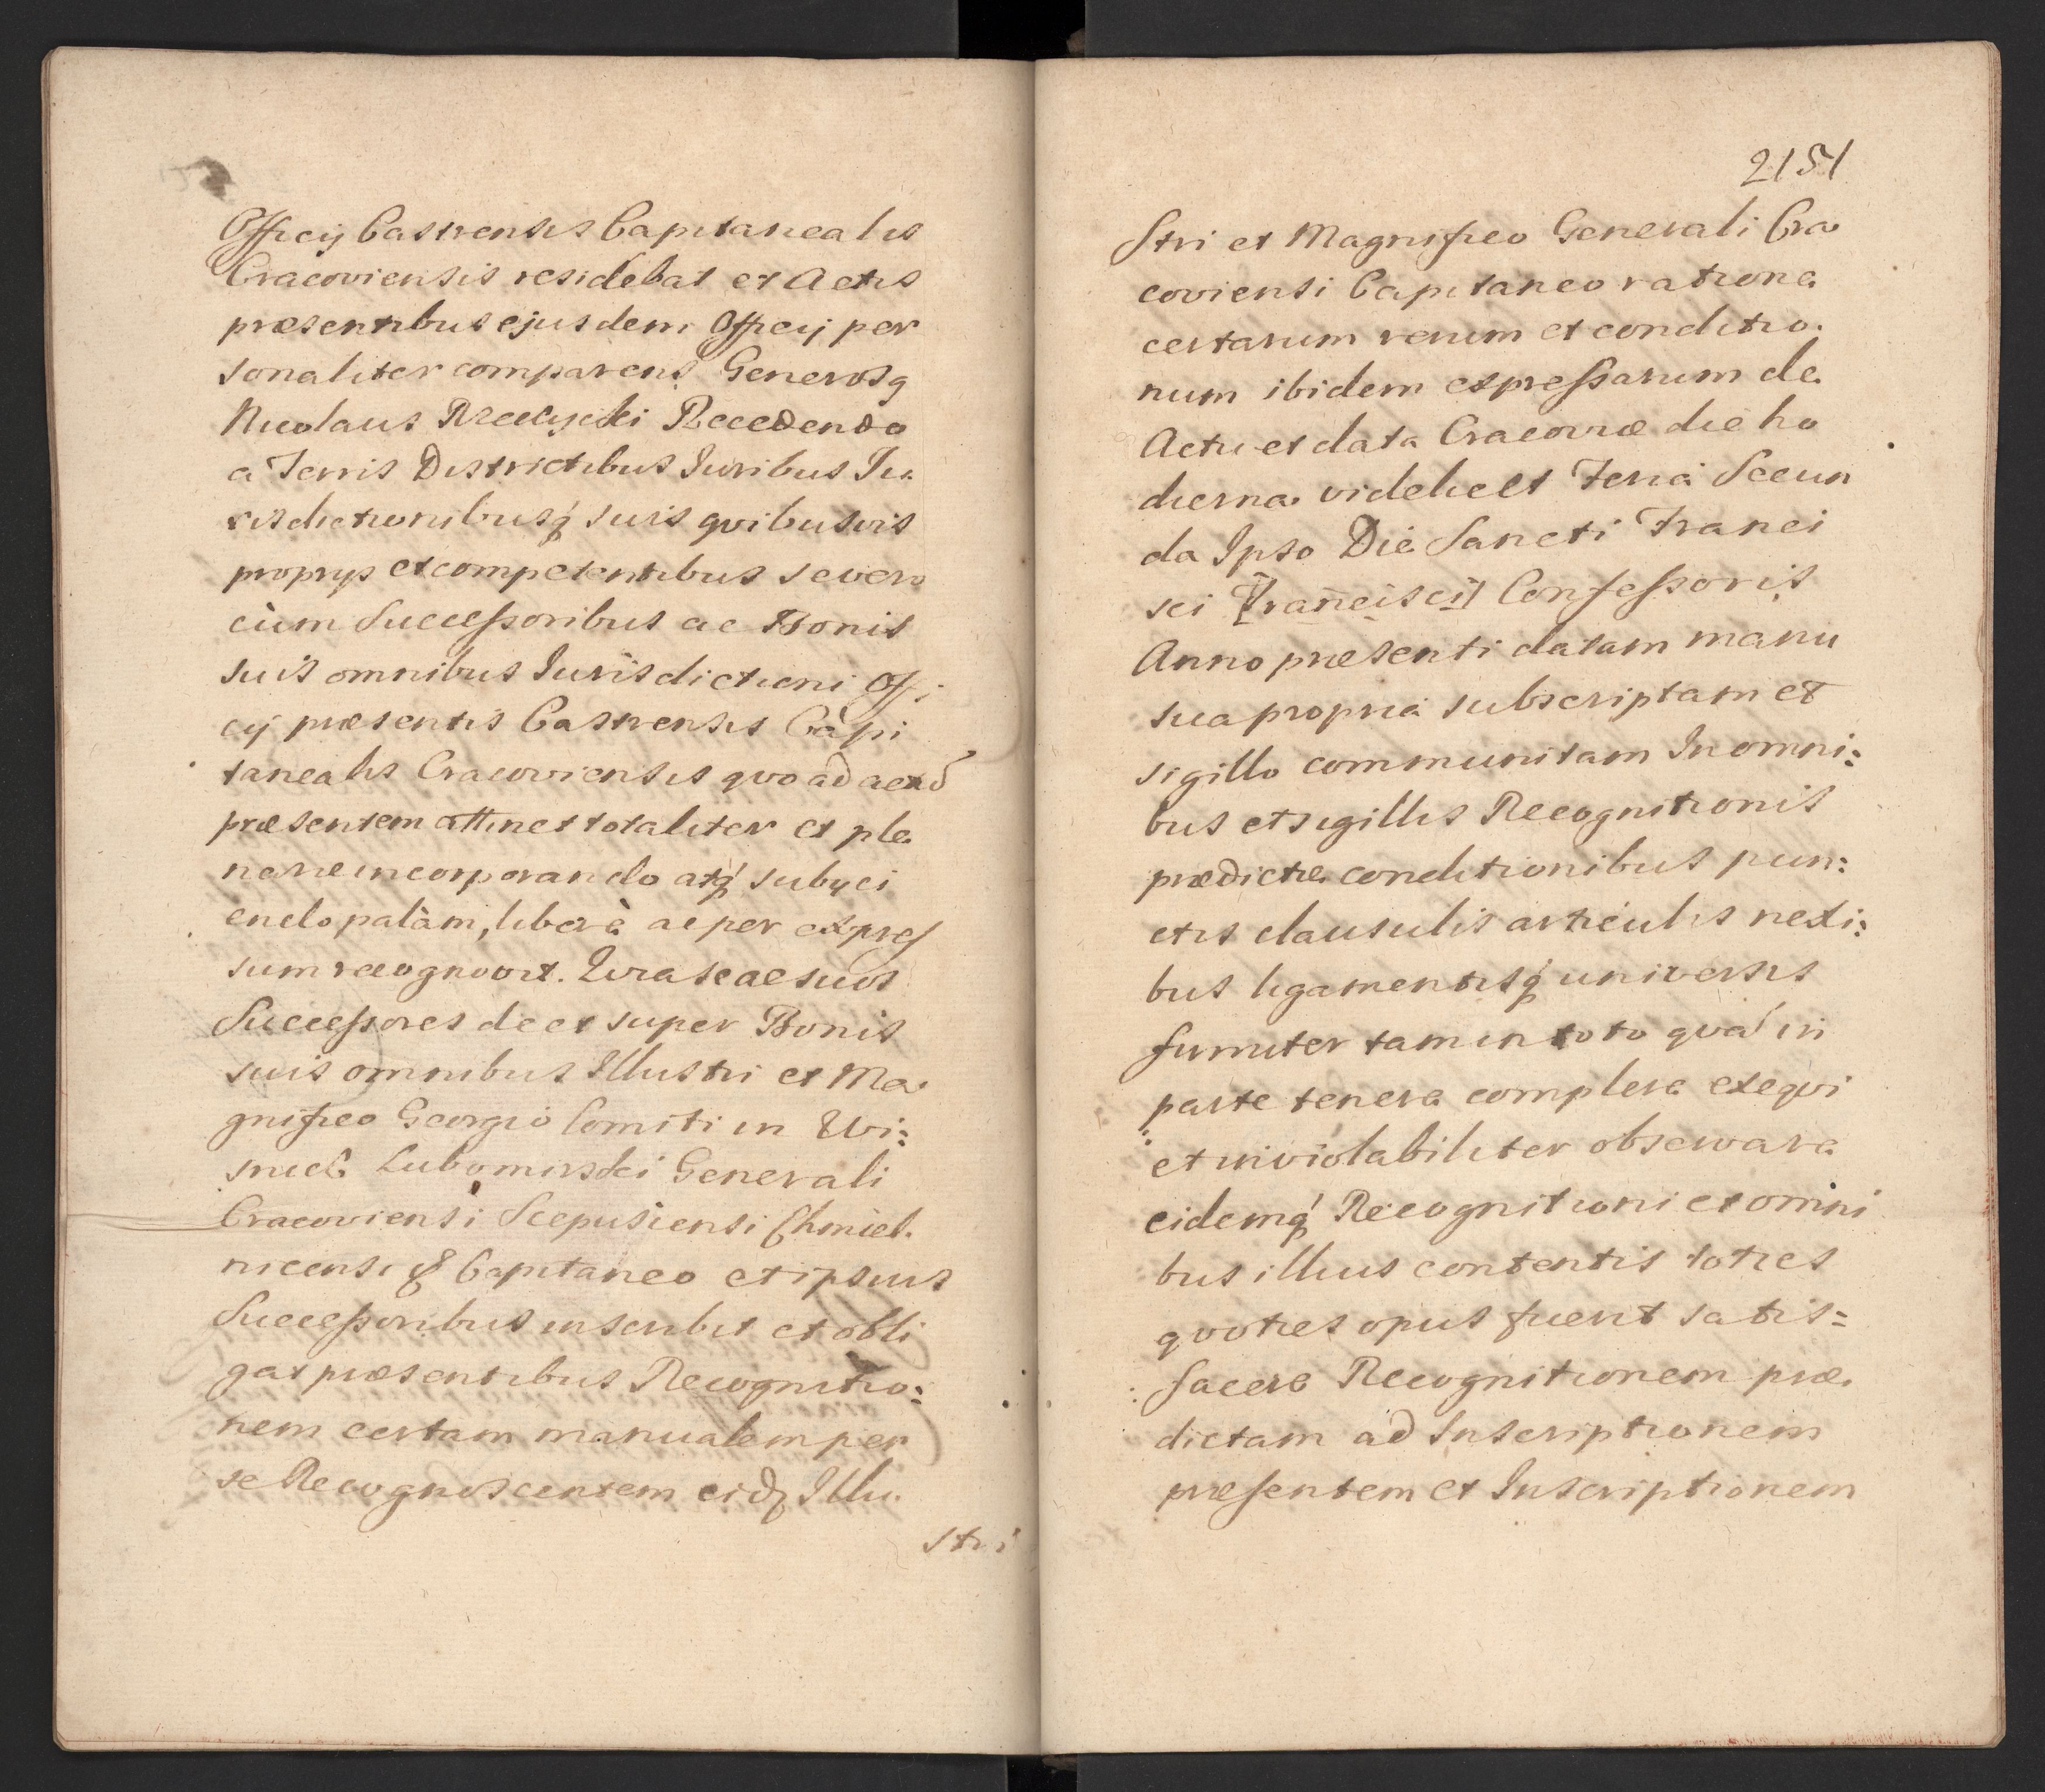 Officij Castrensis Capitanealis
Cracoviensis residebat et Actis
præsentibus ejusdem Officij per
sonaliter comparens Generosq
Nicolaus Recedendo
a Terris Districtibus Iuribus Iu
risdictionibusq suis qvibusvis
proprys et competentibus se vero
cùm Successoribus ac Bonis
suis omnibus Iurisdictioni Offi
cij præsentis Castrensis Capi
tanealis Cracoviensis qvo ad actū
præsentem attinet totaliter et ple
narie incorporando atq subyci
endo palàm, liberè ac per expres
sum recognovit. Qvia se ac suos
Successores de et super Bonis
suis omnibus Illustri et Ma
gnifico Georgio Comiti in Wi:
snicz Lubomirski Generali
Cracoviensi Scepusiensi Chmiel
nicensi & Capitaneo et ipsius
Successoribus inscribit et obli
gat præsentibus Recognitio:
nem certam manualem per
se Recognoscentem eidq Illu
stri
2151
Stri et Magnifico Generali Cra
coviensi Capitaneo ratione
certarum rerum et conditio
num ibidem expressarum de
Actu et data Cracoviæ die ho
dierna videlicet Feria Secun
da Ipso Die Sancti Franci
sci [Francisci] Confessoris
Anno præsenti datam manu
sua propria subscriptam et
sigillo communitam In omni:
bus et sigillis Recognitionis
prædictæ conditionibus pun:
ctis clausulis articulis nexi:
bus ligamentisq universis
firmiter tam in toto qvā in
parte tenere complere exeqvi
et inviolabiliter observare
eidemq Recognitioni et omni
bus illius contentis toties
qvoties opus fuerit satis=
facere Recognitionem præ
dictam ad Inscriptionem
præsentem et Inscriptionem